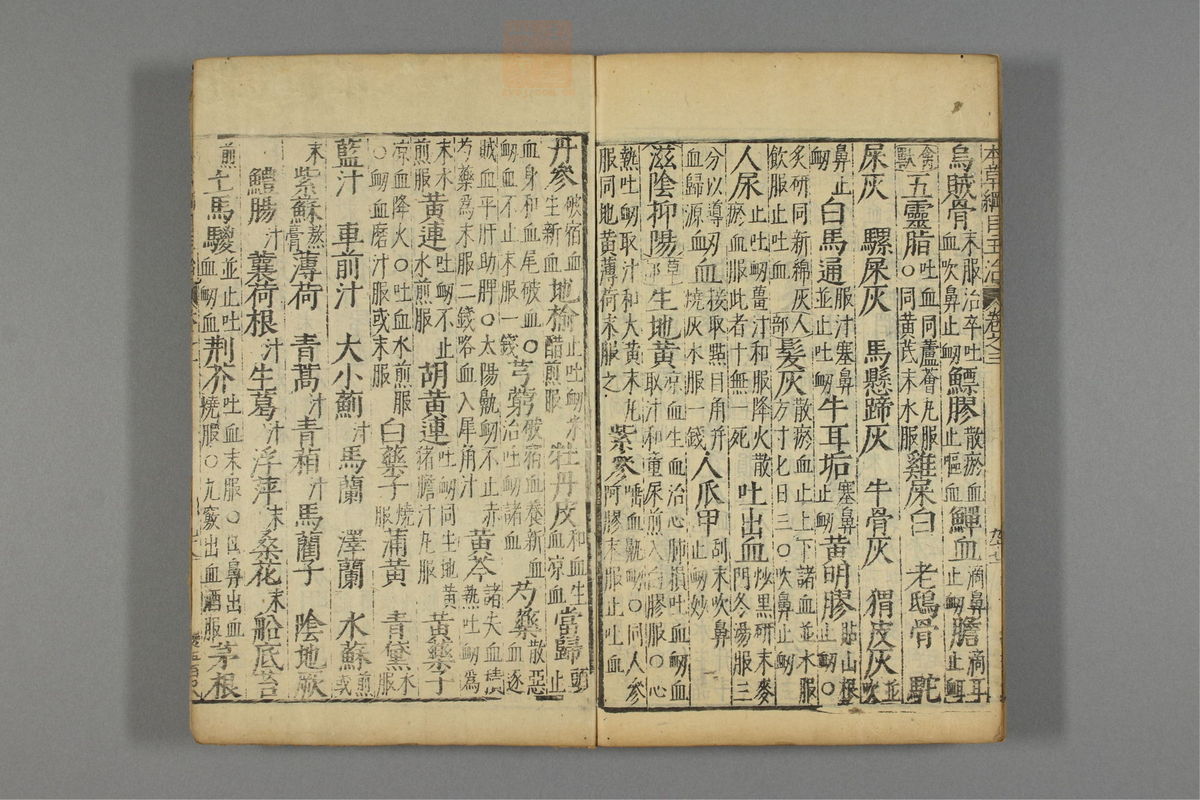 本草綱目主治 卷之三
烏賊骨末服治卒吐血吹鼻止衄鰾膠散瘀血止嘔血鱓血滴鼻止衄膽滴耳止衄
禽獸五靈脂吐血同蘆薈丸服○同黃芪末水服雞屎白 老鴟骨 駝
屎灰 騾屎灰 馬懸蹄灰 牛骨灰 猬皮灰並吹
鼻止衄白馬通服汁塞鼻並止吐衄牛耳垢塞鼻止衄黃明膠貼山根止衄○
炙研同新綿灰飲服止吐血人部髮灰散瘀血止上下諸血並水服方寸匕日三○吹鼻止衄
人尿止吐衄薑汁和服降火散瘀血服此者十無一死吐出血炒黑研末麥門冬湯服三
分以導血歸源衄血接取點目角并燒灰水服一錢人爪甲刮末吹鼻止衄妙
滋陰抑陽草部生地黃涼血生血治心肺損吐血衄血取汁和童尿煎入白膠服○心
熱吐衄取汁和大黃末丸服同地黃薄荷末服之紫參唾血鼽衄○同人參阿膠末服止吐血
丹參破宿血生新血地榆止吐衄米醋煎服牡丹皮和血生血涼血當歸頭止
血身和血尾破血衄血不止末服一錢○芎藭破宿血養新血治吐衄諸血芍藥散惡血逐
賊血平肝助脾○太陽鼽衄不止赤芍藥為末服二錢咯血入犀角汁黃芩諸失血積熱吐衄為
末水煎服黃連吐衄不止水煎服胡黃連吐衄同生地黃猪膽汁丸服黃藥子
涼血降火○吐血水煎服○衄血磨汁服或末服白藥子燒服蒲黃 青黛水服
藍汁 車前汁 大小薊汁 馬蘭 澤蘭 水蘇煎或
末紫蘇熬膏薄荷 青蒿汁青葙汁馬藺子 陰地厥
鱧腸汁蘘荷根汁生葛汁浮萍末桑花末船底苔
煎土馬騣並止吐血衄血荊芥吐血末服○口鼻出血燒服○九竅出血酒服茅根